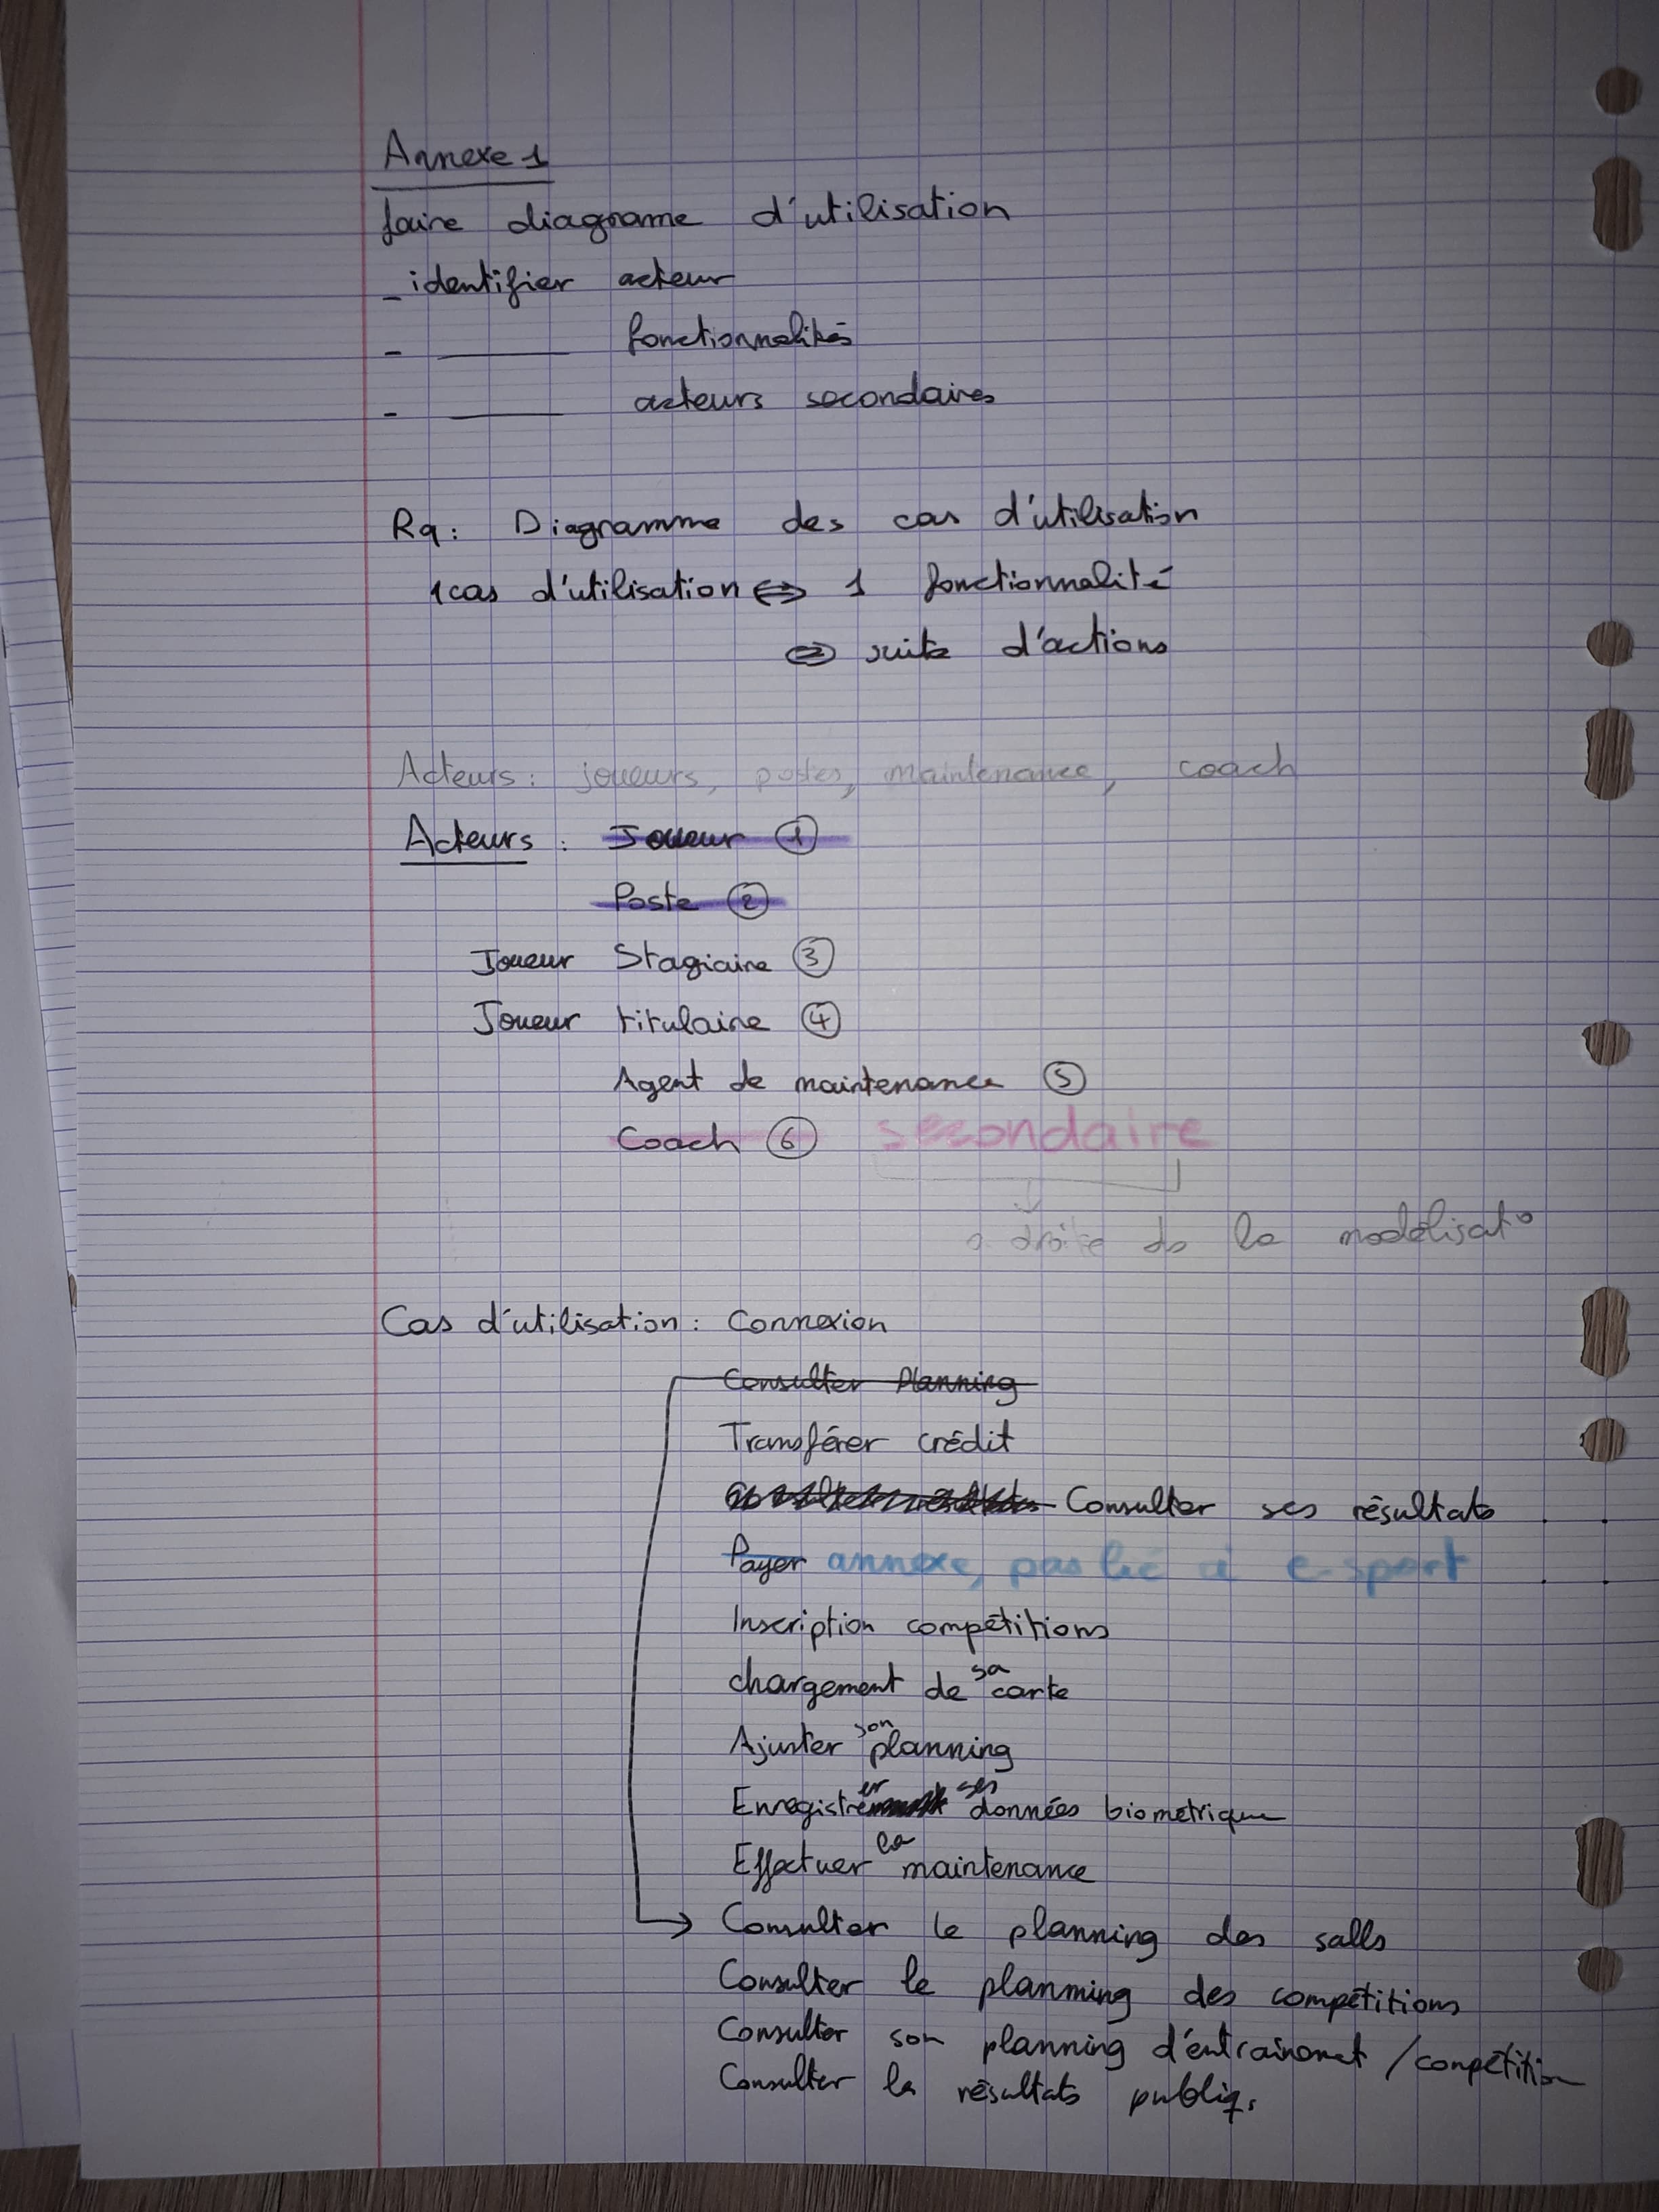 Annexe 1
faire diagrame d'utilisation
- identifier acteur
- ——— fonctionnalités
- ——— acteurs secondaires
Rq : Diagramme des cas d'utilisation
1 cas d'utilisation ⇔ 1 fonctionnalité
⇔ suite d'actions
Acteurs : joueurs, postes, maintenance, coach
Acteurs : Joueur ①
Poste ②
Joueur Stagiaire ③
Joueur titulaire ④
Agent de maintenance ⑤
Coach ⑥ secondaire
à droite de la modélisat°
Cas d'utilisation : Connexion
Consulter Planning
Transférer crédit
Consulter ses résultats
Payer annexe, pas lié à e-sport
Inscription compétitions
chargement de sa carte
Ajuster son planning
Enregistrer ses données biometrique
Effectuer la maintenance
→ Consulter le planning des salls
Consulter le planning des compétitions
Consulter son planning d'entrainemet / compétition
Consulter les résultats publiq.